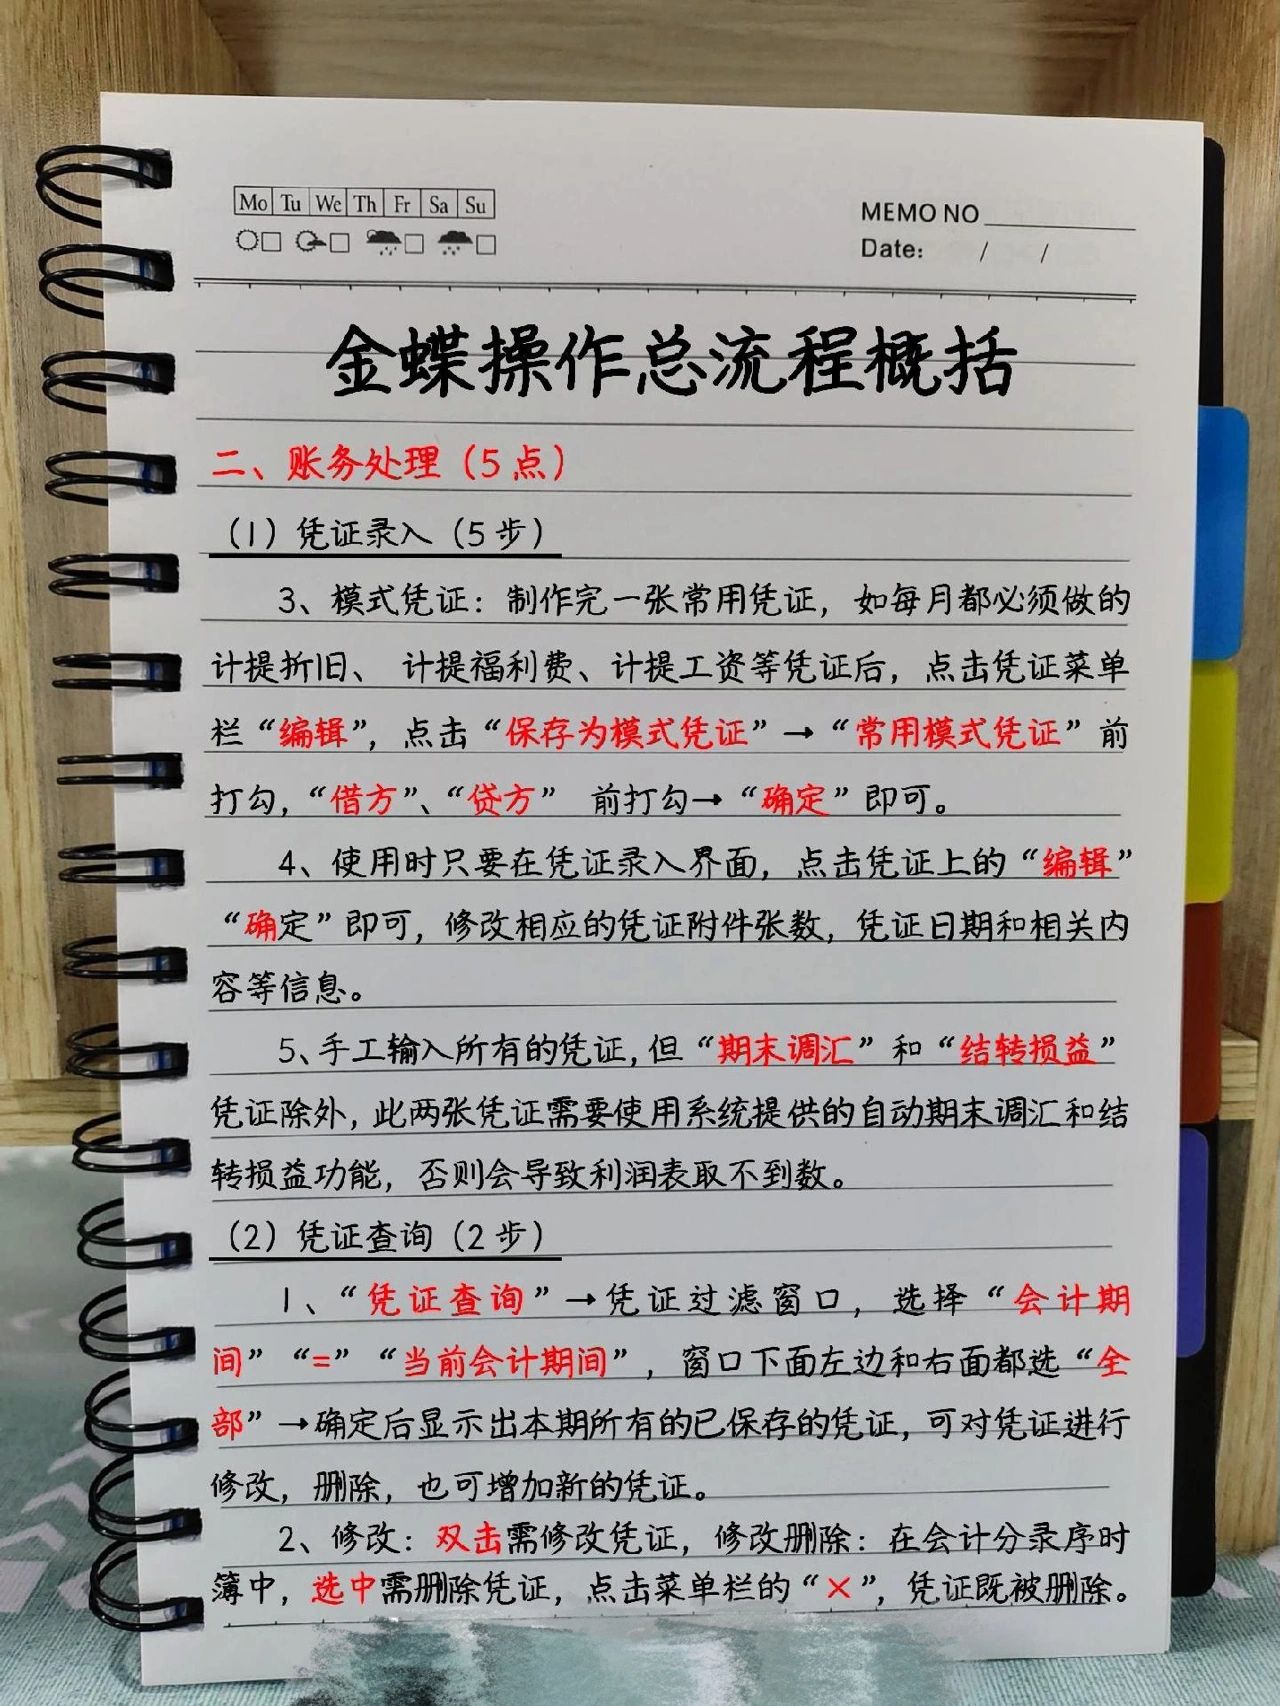 Mo Tu We Th Fr Sa Su
MEMO NO
Date: / /
金蝶操作总流程概括
二、账务处理（5点）
（1）凭证录入（5步）
3、模式凭证：制作完一张常用凭证，如每月都必须做的
计提折旧、 计提福利费、计提工资等凭证后，点击凭证菜单
栏“编辑”，点击“保存为模式凭证”→“常用模式凭证”前
打勾，“借方”、“贷方” 前打勾→“确定”即可。
4、使用时只要在凭证录入界面，点击凭证上的“编辑”
“确定”即可，修改相应的凭证附件张数，凭证日期和相关内
容等信息。
5、手工输入所有的凭证，但“期末调汇”和“结转损益”
凭证除外，此两张凭证需要使用系统提供的自动期末调汇和结
转损益功能，否则会导致利润表取不到数。
（2）凭证查询（2步）
1、“凭证查询”→凭证过滤窗口，选择“会计期
间”“=”“当前会计期间”，窗口下面左边和右面都选“全
部”→确定后显示出本期所有的已保存的凭证，可对凭证进行
修改，删除，也可增加新的凭证。
2、修改：双击需修改凭证，修改删除：在会计分录序时
簿中，选中需删除凭证，点击菜单栏的“×”，凭证既被删除。